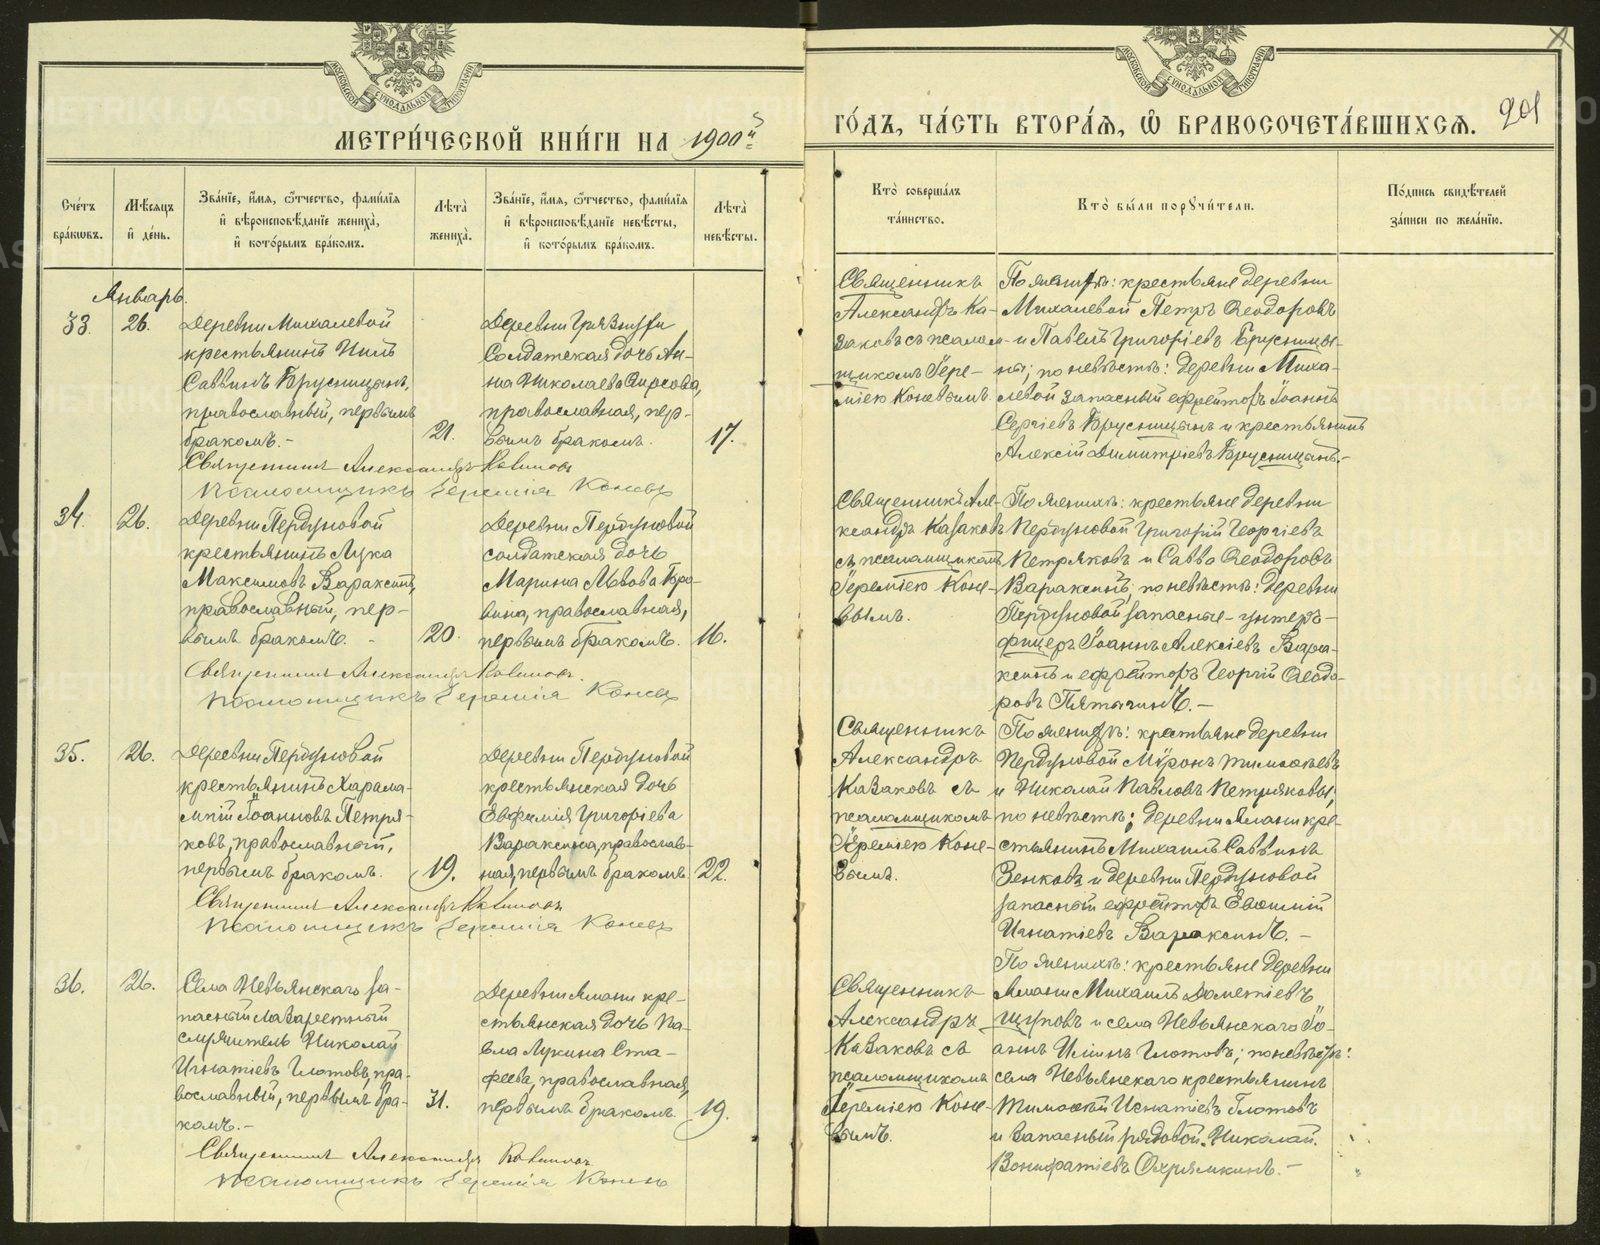 МЕТРИ́ЧЕСКОЙ КНИ́ГИ НА 1900й
ГО́ДЪ, ЧА́СТЬ ВТОРА́Я, Ѡ҆ БРАКОСОЧЕТА́ВШИХСЯ. 201
Сче́тъ бра́кѡвъ.
Мѣ́сяцъ и҆ де́нь.
Зва́нїе, и҆́мя, ѻ҆́тчество, фами́лїя
и҆ вѣроисповѣ́данїе жениха̀,
и҆ кото́рымъ бра́комъ.
Лѣ́та жениха̀.
Зва́нїе, и҆́мя, ѻ҆́тчество, фами́лїя
и҆ вѣроисповѣ́данїе невѣ́сты,
и҆ кото́рымъ бра́комъ.
Лѣ́та невѣ́сты.
Кто̀ соверша́лъ
та́инство.
Кто̀ бы́ли порꙋчи́тели.
По́дпись свидѣ́телей
за́писи по жела́нїю.
Январь.
33. 26.
Деревни Михалевой
крестьянинъ Нилъ
Саввинъ Брусницынъ,
православный, первымъ
бракомъ.-
21.
Деревни
Солдатская дочь Ан-
на Николаева Фирсова,
православная, пер-
вымъ бракомъ.
17.
Священникъ
Александръ Ка-
заковъ съ псалом-
щикомъ Іере-
міею Коневымъ
По женихѣ: крестьяне деревни
Михалевой Петръ Ѳеодоровъ
и Павелъ Григоріевъ Брусницы-
ны; по невѣстѣ: деревни Миха-
левой запасный ефрейторъ Іоаннъ
Сергіевъ Брусницынъ и крестьянинъ
Алексій Димитріевъ Брусницынъ.-
Священникъ Александръ Казаковъ
Псаломщикъ Іеремія Коневъ
34. 26.
Деревни Пердуновой
крестьянинъ Лука
Максимовъ Вараксинъ,
православный, пер-
вымъ бракомъ. -
20.
Деревни Пердуновой
солдатская дочь
Марина Львова
православная,
первымъ бракомъ.
16.
Священникъ Але-
ксандръ Казаковъ
съ псаломщикомъ
Іереміею Коне-
вымъ.
По женихѣ: крестьяне деревни
Пердуновой Григорій Георгіевъ
Петряковъ и Савва Ѳеодоровъ
Вараксинъ; по невѣстѣ: деревни
Пердуновой запасные - унтеръ-
фицеръ Іоаннъ Алексіевъ Вара-
ксинъ и ефрейторъ Георгій Ѳеодо-
ровъ Пятыгинъ.-
Священникъ Александръ Казаковъ.
Псаломщикъ Іеремія Коневъ
35. 26.
Деревни Пердуновой
крестьянинъ Харала-
мпій Іоанновъ Петря-
ковъ, православный,
первымъ бракомъ.
19.
Деревни Пердуновой
крестьянская дочь
Евфимія Григоріева
Вараксина, православ-
ная, первымъ бракомъ.
22.
Священникъ
Александръ
Казаковъ съ
псаломщикомъ
Іереміею Коне-
вымъ.
По женихѣ: крестьяне деревни
Пердуновой Мѵронъ Тимоѳеевъ
и Николай Павловъ Петряковы;
по невѣстѣ: деревни Ялани кре-
стьянинъ Михаилъ Саввинъ
Зенковъ и деревни Пердуновой
запасный ефрейторъ Евѳимій
Игнатіевъ Вараксинъ.-
Священникъ Александръ Казаковъ
Псаломщикъ Іеремія Коневъ
36. 26.
Села Невьянскаго за-
пасный лазаретный
служитель Николай
Игнатіевъ Глотовъ, пра-
вославный, первымъ бра-
комъ.-
31.
Деревни Ялани кре-
стьянская дочь Па-
вла Лукина Ста-
феева, православная,
первымъ бракомъ.
19.
Священникъ
Александръ
Казаковъ съ
псаломщикомъ
Іереміею Коне-
вымъ.
По женихѣ: крестьяне деревни
Ялани Михаилъ Дометіевъ
Щуповъ и села Невьянскаго Іо-
аннъ Иліинъ Глотовъ; по невѣстѣ:
села Невьянскаго крестьянинъ
Тимоѳей Игнатіевъ Глотовъ
и запасный рядовой Николай
Вонифатіевъ Охрямкинъ.-
Священникъ Александръ Казаковъ
Псаломщикъ Іеремія Коневъ